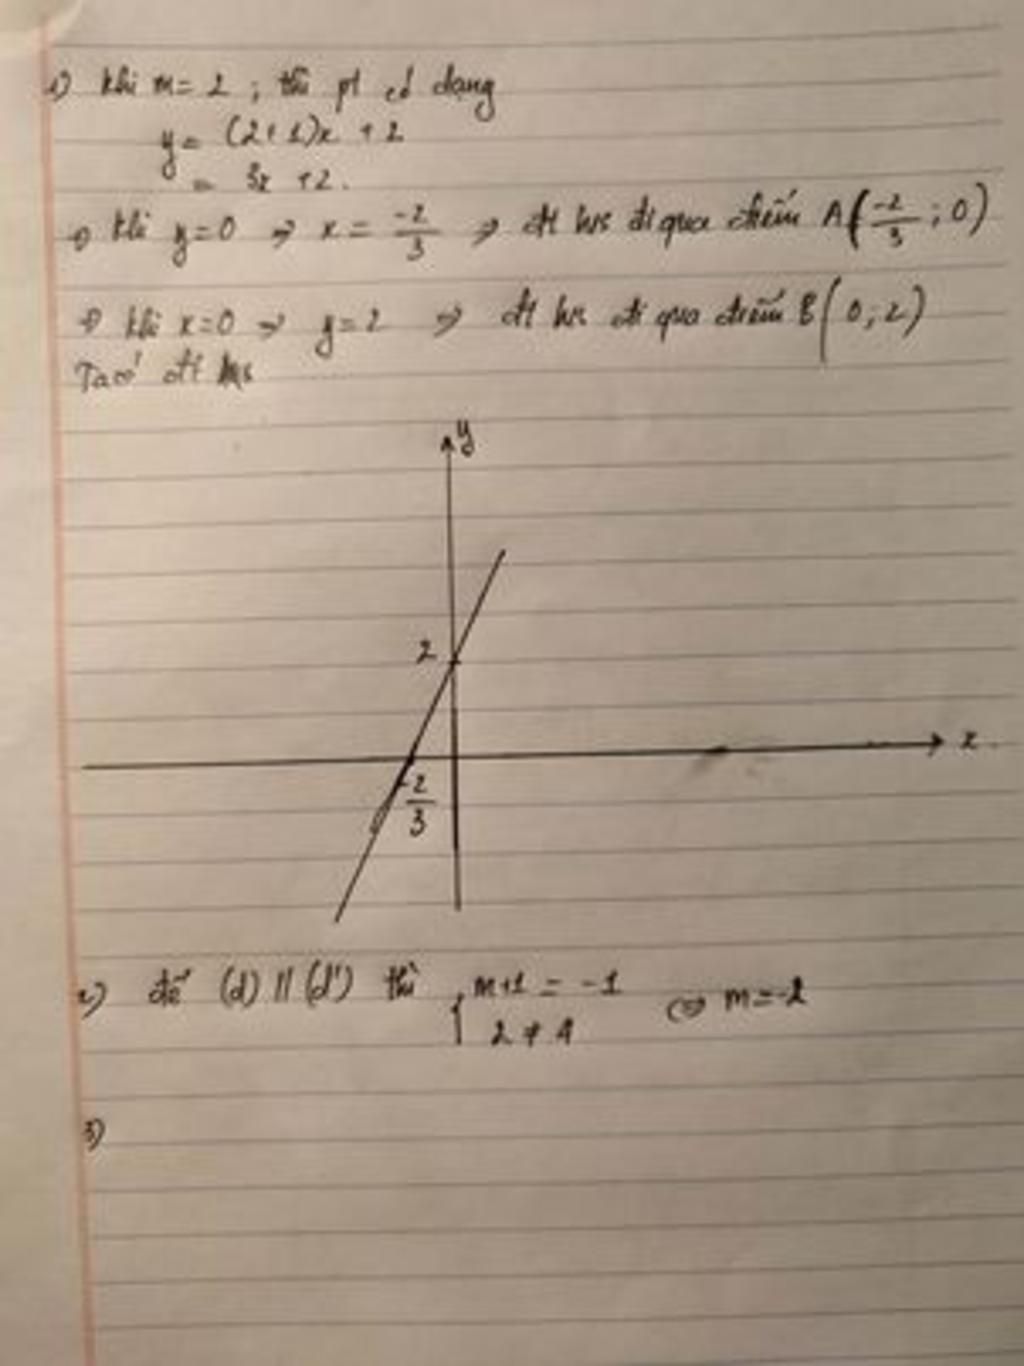 1) khi m = 2 ; thì pt có dạng
y = (2+1)x + 2
= 3x + 2.
khi y=0 => x = -2/3 => đt hs đi qua điểm A(-2/3 ; 0)
khi x=0 => y=2 => đt hs đi qua điểm B(0; 2)
Ta có đt hs
y
2
x
-2/3
2) để (d) // (d') thì { m+1 = -1 <=> m = -2
2 ≠ 4
3)